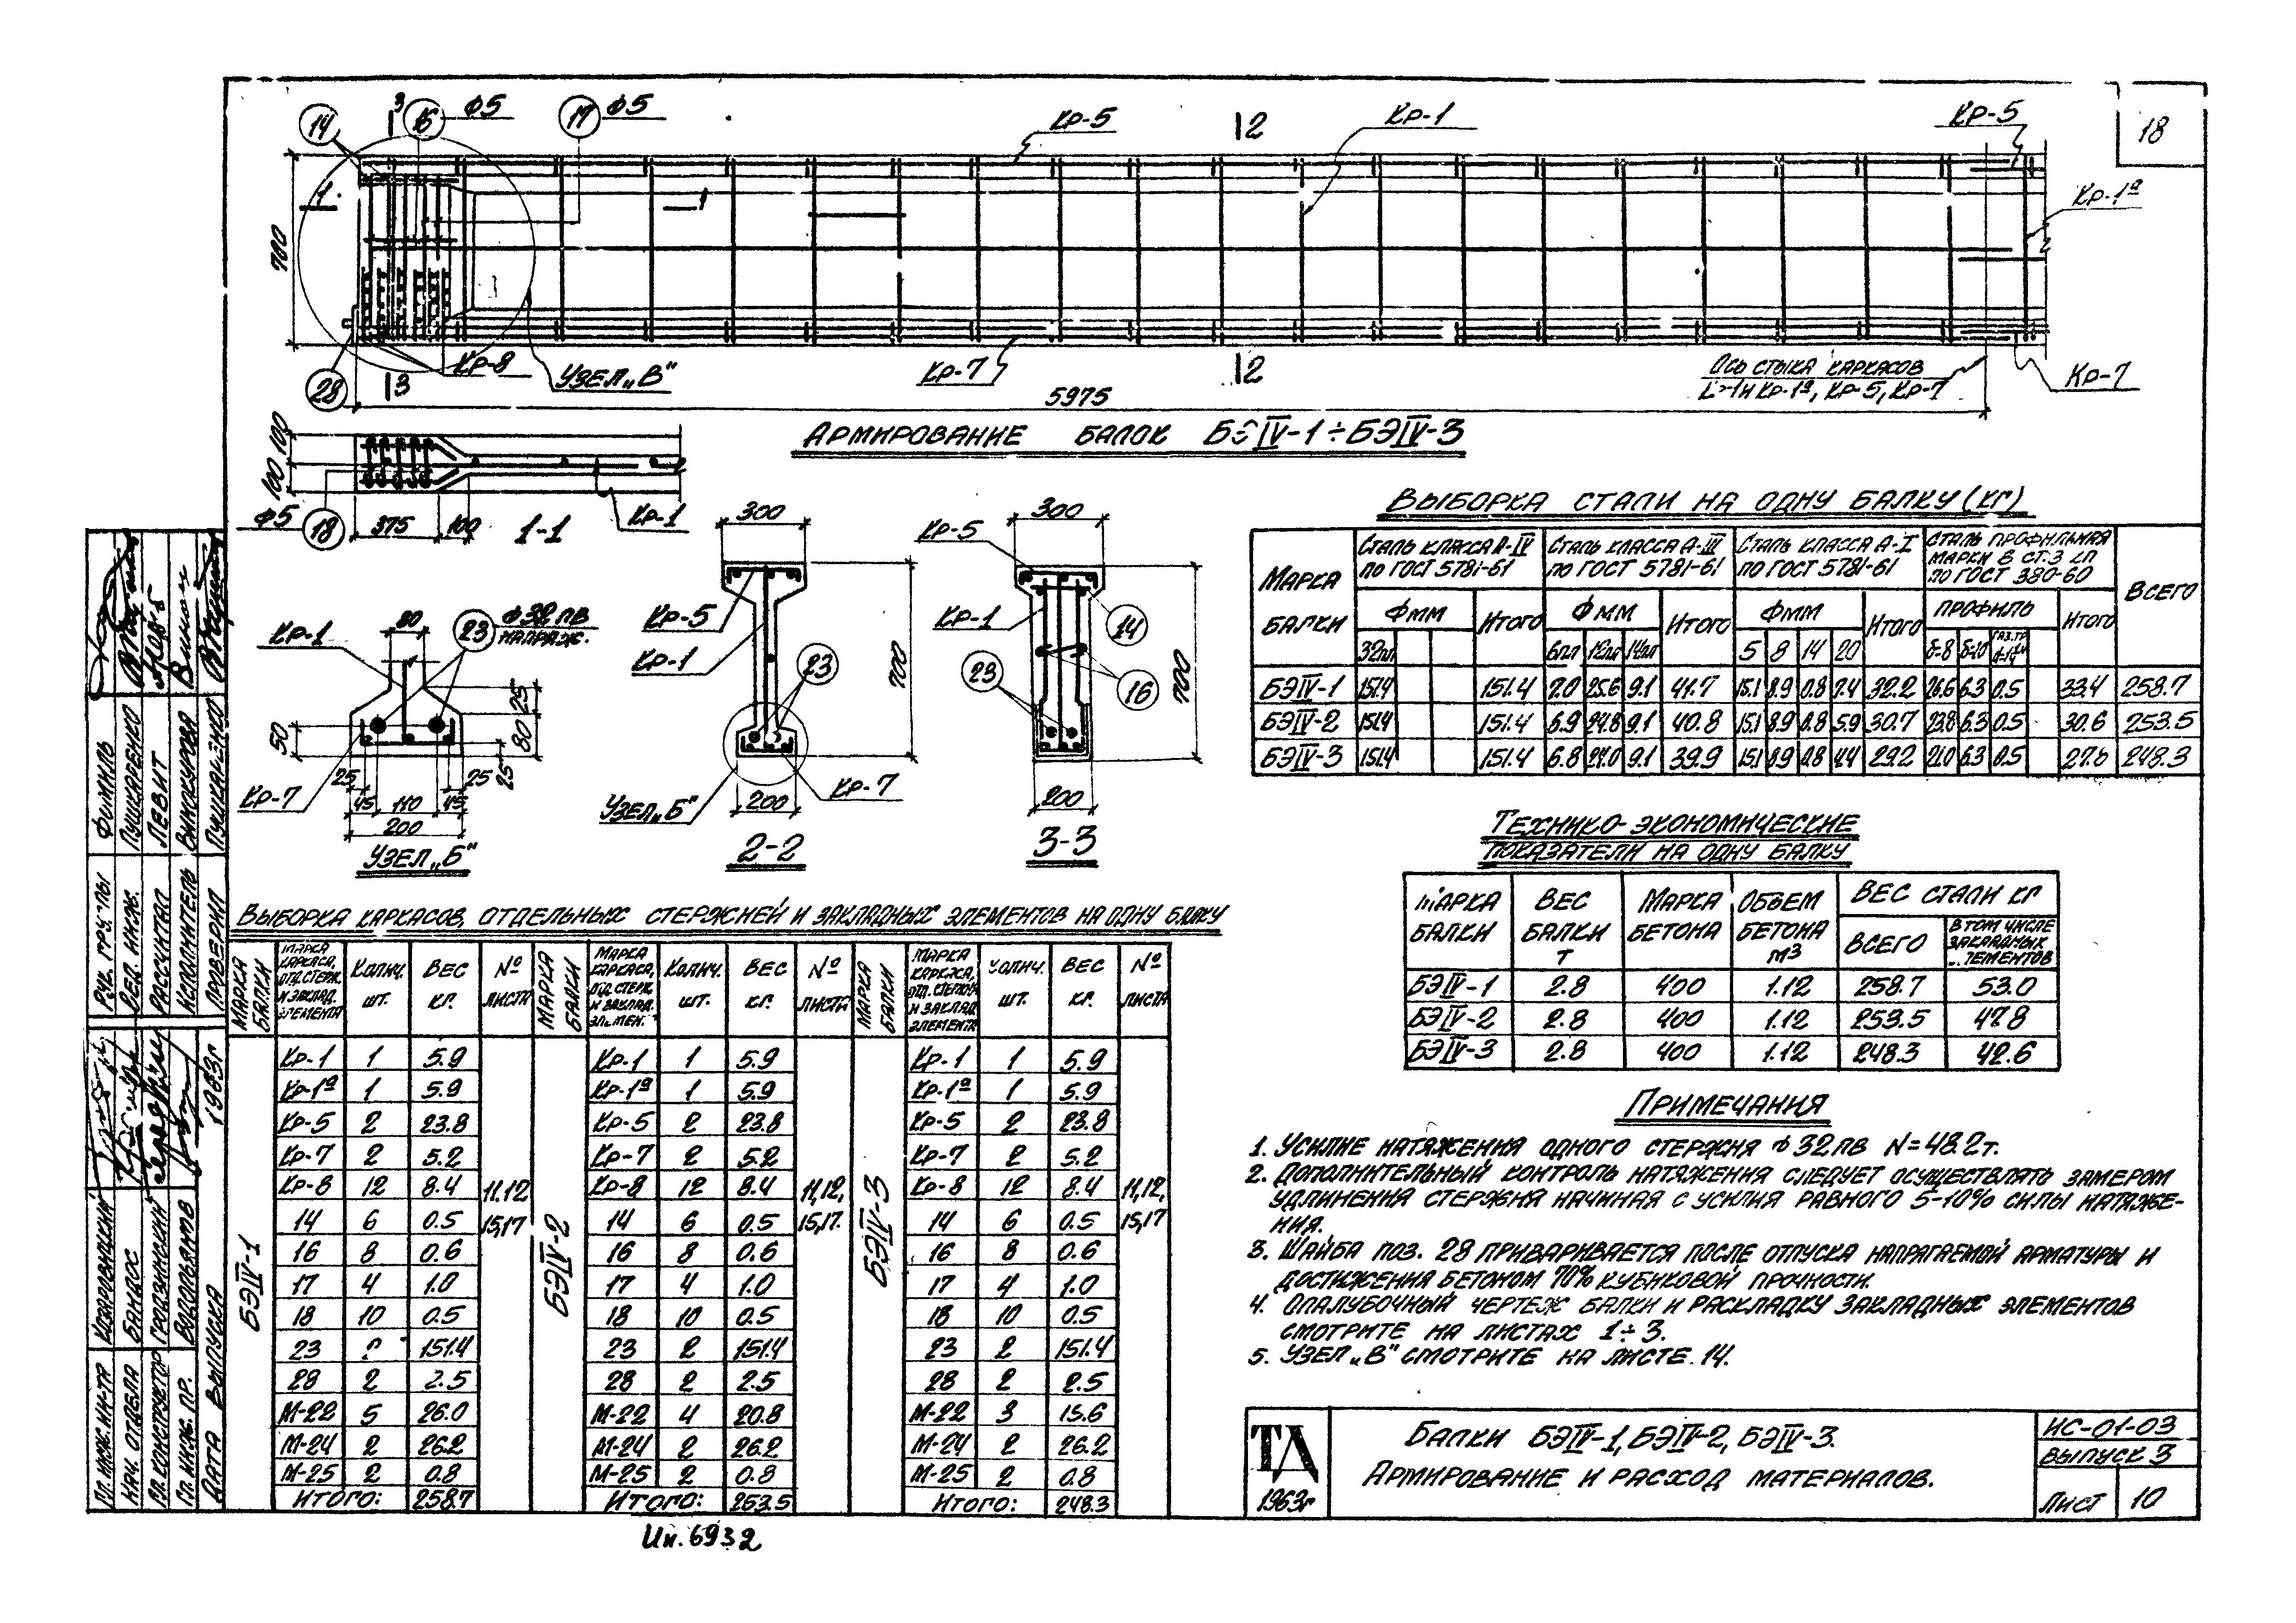 18
14
3
16
Ф5
17
Ф5
Кр-5
2
Кр-1
Кр-5
Кр-1а
1
1
700
28
Кр-8
3
Узел „В"
Кр-7
2
Ось стыка каркасов
и Кр-1а, Кр-5, Кр-7
Кр-7
5975
Армирование балок БЭIV-1÷БЭIV-3
100 100
Ф5
18
375
100
1-1
Кр-1
Кр-1
80
23
Ф32пв
напряж.
50
25
80
25
25
25
45
110
45
200
Кр-7
Узел „Б"
300
Кр-5
Кр-1
23
700
Узел „Б"
200
Кр-7
2-2
300
Кр-5
Кр-1
14
23
16
700
200
3-3
Выборка стали на одну балку (кг)
Марка балки | Сталь класса А-IV по ГОСТ 5781-61 | Сталь класса А-III по ГОСТ 5781-61 | Сталь класса А-I по ГОСТ 5781-61 | Сталь профильная марки В Ст.3 сп по ГОСТ 380-60 | Всего
Фмм | Итого | Фмм | Итого | Фмм | Итого | Профиль | Итого
32пл | 6пл | 12пл | 14пл | 5 | 8 | 14 | 20 | δ=8 | δ=10
БЭIV-1 | 151.4 | 151.4 | 7.0 | 25.6 | 9.1 | 41.7 | 15.1 | 8.9 | 0.8 | 7.4 | 32.2 | 26.6 | 6.3 | 0.5 | 33.4 | 258.7
БЭIV-2 | 151.4 | 151.4 | 6.9 | 24.8 | 9.1 | 40.8 | 15.1 | 8.9 | 0.8 | 5.9 | 30.7 | 23.8 | 6.3 | 0.5 | 30.6 | 253.5
БЭIV-3 | 151.4 | 151.4 | 6.8 | 24.0 | 9.1 | 39.9 | 15.1 | 8.9 | 0.8 | 4.4 | 29.2 | 21.0 | 6.3 | 0.5 | 27.6 | 248.3
Технико-экономические
показатели на одну балку
Марка балки | Вес балки т | Марка бетона | Объем бетона м3 | Вес стали кг
Всего | В том числе закладных элементов
БЭIV-1 | 2.8 | 400 | 1.12 | 258.7 | 53.0
БЭIV-2 | 2.8 | 400 | 1.12 | 253.5 | 47.8
БЭIV-3 | 2.8 | 400 | 1.12 | 248.3 | 42.6
Выборка каркасов, отдельных стержней и закладных элементов на одну балку
Марка балки | Марка каркаса, отд. стерж. и заклад. элемента | Колич. шт. | Вес кг. | № листа | Марка балки | Марка каркаса, отд. стерж. и заклад. элемен. | Колич. шт. | Вес кг. | № листа | Марка балки | Марка каркаса, отд. стержн. и заклад. элемента | Колич. шт. | Вес кг. | № листа
БЭIV-1 | БЭIV-2 | БЭIV-3
Кр-1 | 1 | 5.9 | Кр-1 | 1 | 5.9 | Кр-1 | 1 | 5.9
Кр-1а | 1 | 5.9 | Кр-1а | 1 | 5.9 | Кр-1а | 1 | 5.9
Кр-5 | 2 | 23.8 | Кр-5 | 2 | 23.8 | Кр-5 | 2 | 23.8
Кр-7 | 2 | 5.2 | Кр-7 | 2 | 5.2 | Кр-7 | 2 | 5.2
Кр-8 | 12 | 8.4 | 11.12 | Кр-8 | 12 | 8.4 | 11,12, | Кр-8 | 12 | 8.4 | 11,12,
14 | 6 | 0.5 | 15,17 | 14 | 6 | 0.5 | 15,17. | 14 | 6 | 0.5 | 15,17
16 | 8 | 0.6 | 16 | 8 | 0.6 | 16 | 8 | 0.6
17 | 4 | 1.0 | 17 | 4 | 1.0 | 17 | 4 | 1.0
18 | 10 | 0.5 | 18 | 10 | 0.5 | 18 | 10 | 0.5
23 | 151.4 | 23 | 2 | 151.4 | 23 | 2 | 151.4
28 | 2 | 2.5 | 28 | 2 | 2.5 | 28 | 2 | 2.5
М-22 | 5 | 26.0 | М-22 | 4 | 20.8 | М-22 | 3 | 15.6
М-24 | 2 | 26.2 | М-24 | 2 | 26.2 | М-24 | 2 | 26.2
М-25 | 2 | 0.8 | М-25 | 2 | 0.8 | М-25 | 2 | 0.8
Итого: | 258.7 | Итого: | 253.5 | Итого: | 248.3
Примечания
1. Усилие натяжения одного стержня ф32пв N=48.2т.
2. Дополнительный контроль натяжения следует осуществлять замером
удлинения стержня начиная с усилия равного 5-10% силы натяже-
ния.
3. Шайба поз. 28 приваривается после отпуска напрягаемой арматуры и
достижения бетоном 70% кубиковой прочности.
4. Опалубочный чертеж балки и раскладку закладных элементов
смотрите на листах 1÷3.
5. Узел „В" смотрите на листе 14.
ТА
1963г
Балки БЭIV-1, БЭIV-2, БЭIV-3.
Армирование и расход материалов.
ИС-01-03
Выпуск 3
Лист 10
Рук. группы
Фимиль
Вед. инж.
Пушкаренко
Рассчитал
Левит
Исполнитель
Винокурова
Проверил
Пушкаренко
Гл. инж. ин-та
Нач. отдела
Бандос
Гл. конструктор
Гродзинский
Гл. инж. пр.
Дата выпуска
1963г
Ин. 6932